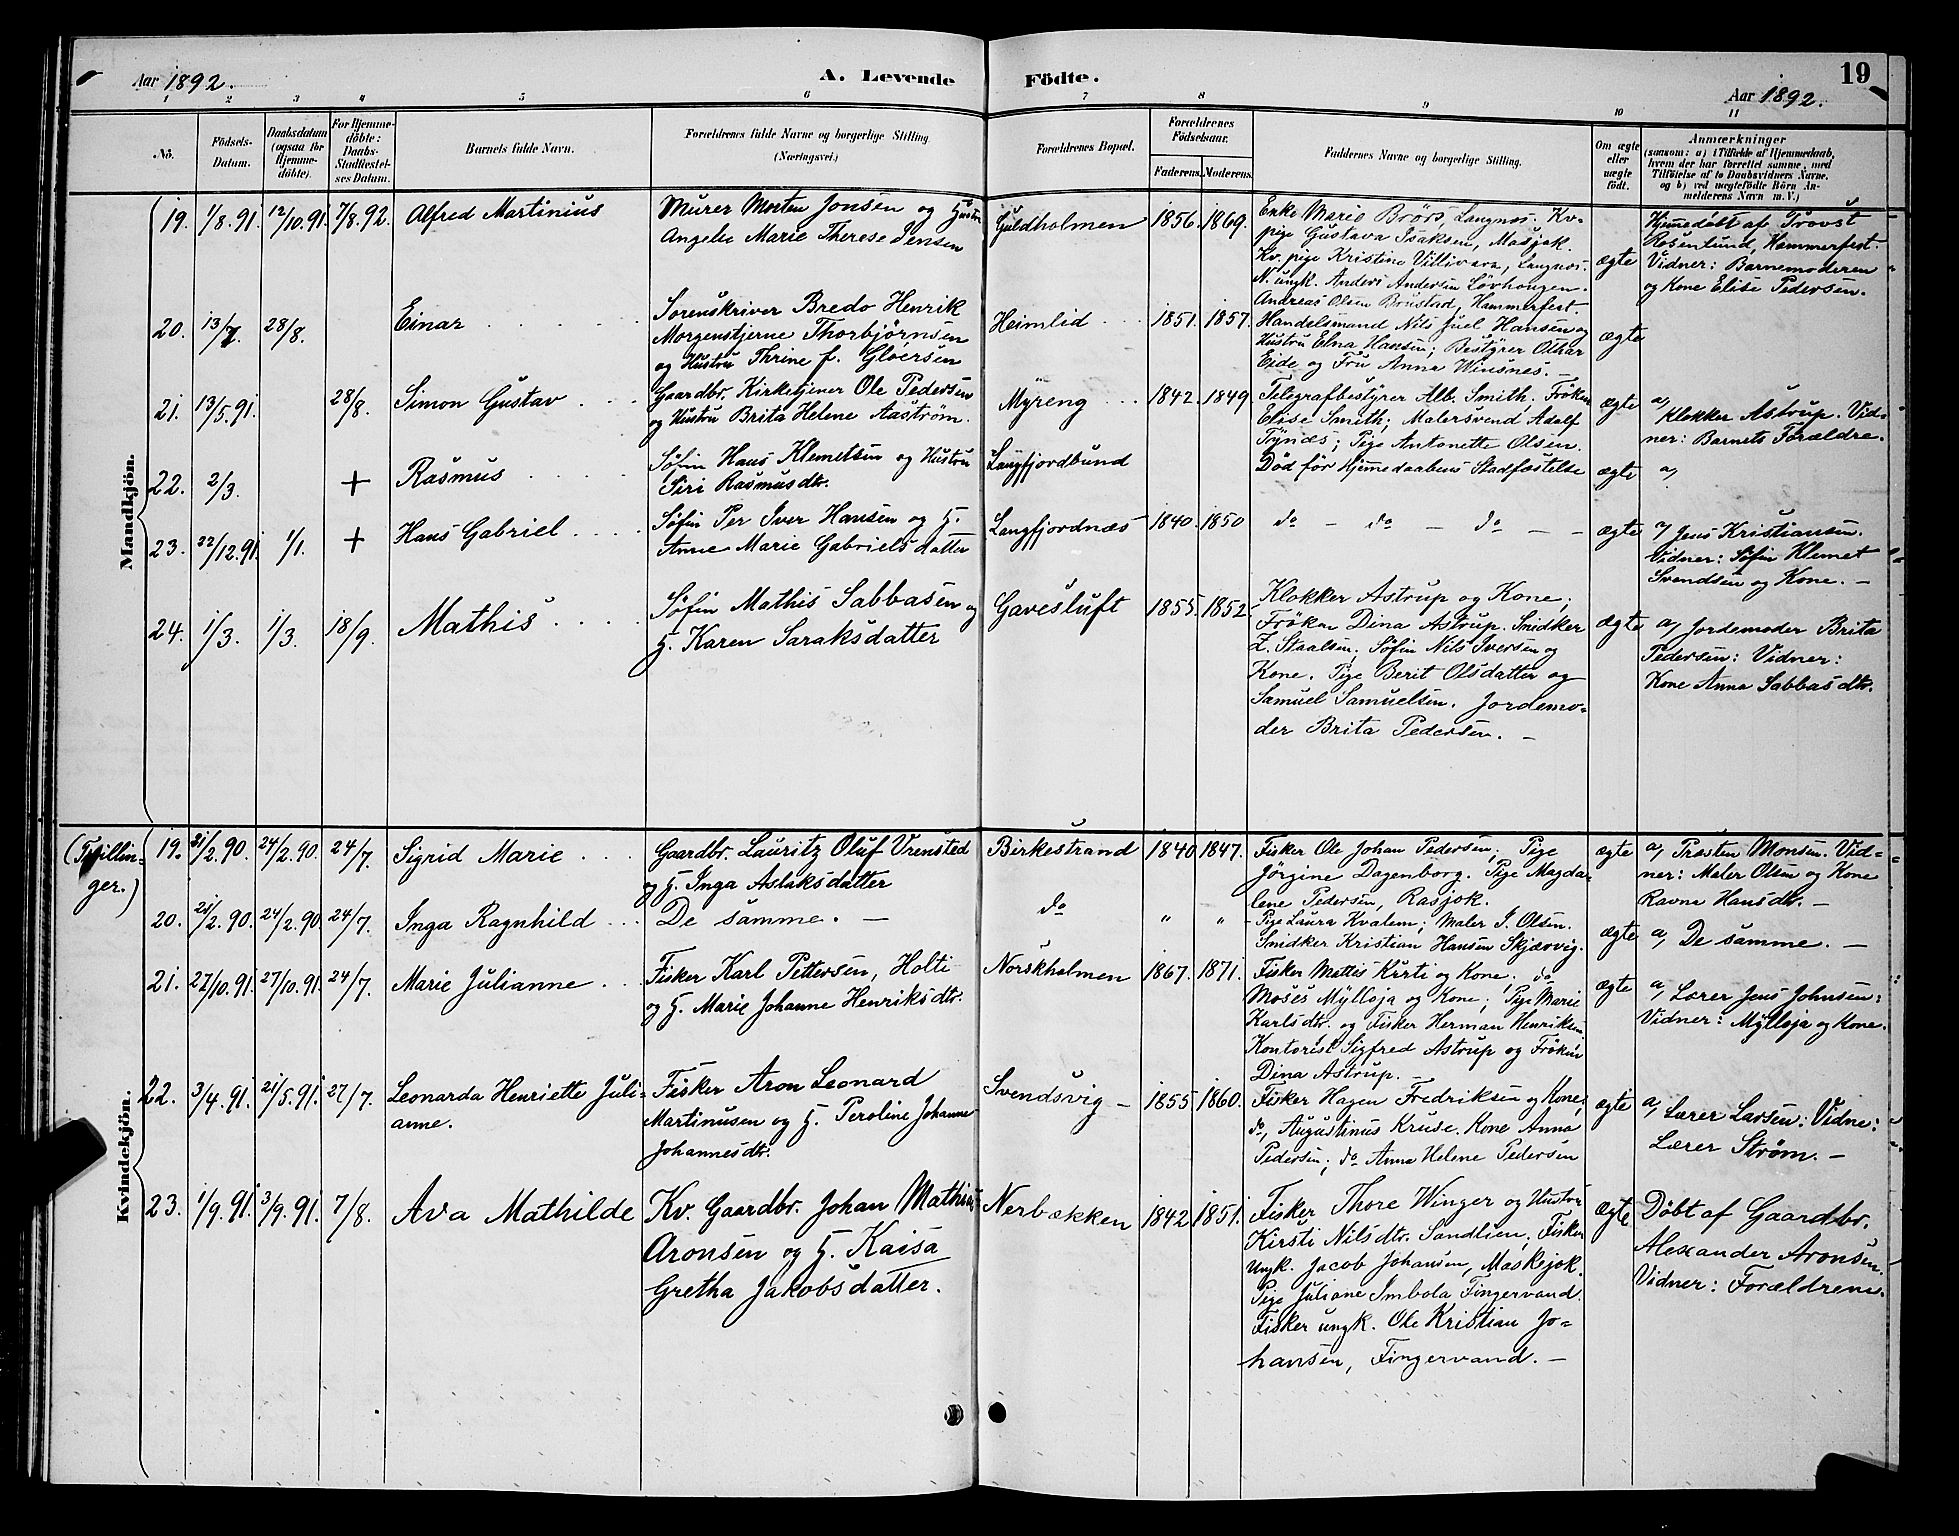 Aar 1892. A. Levende Födte. Aar 1892. 19
1 2 3 4 5 6 7 8 9 10 11
Nö.
Födsels-Datum.
Daabsdatum (ogsaa for Hjemmedöbte).
For Hjemmedöbte: Daabs-Stadfæstelses Datum.
Barnets fulde Navn.
Forældrenes fulde Navne og borgerlige Stilling (Næringsvei.)
Forældrenes Bopæl.
Forældrenes Födselsaar.
Faderens. Moderens.
Faddernes Navne og borgerlige Stilling.
Om ægte eller uægte födt.
Anmærkninger
(saasom: a) i Tilfælde af Hjemmedaab, hvem der har forrettet samme, med Tilföielse af to Daabsvidners Navne, og b) ved uægtefödte Börn Anmelderens Navn m. V.)
Mandkjön.
19. 1/8.91. 12/10.91. 7/8.92. Alfred Martinius
Murer Morten Jonsen og Hustru
Angelie Marie Therese Jensen
Guldholmen 1856. 1869.
Enke Marie Brörs, Langnes. Kv.
pige Gustava Isaksen, Masjok.
Kv. pige Kristine Villivara, Langnes.
N. ungk. Anders Andersen Lövhougen.
Andreas Olsen Brustad, Hammerfest.
ægte
Hjemmedöbt af Provst
Rosenlund, Hammerfest.
Vidner: Barnemoderen
og Kone Elise Pedersen.
20. 13/7. 28/8. Einar
Sorenskriver Bredo Henrik
Morgenstjerne Thorbjörnsen
og Hustru Thrine f. Gloersen
Heimlid 1851. 1857.
Handelsmand Nils Juel Hansen og
Hustru Elna Hansen; Bestyrer Othar
Eide og Fru Anna Winsnes.
ægte
21. 13/5.91. 28/8. Simon Gustav
Gaardbr. Kirketjener Ole Pedersen
og Hustru Brita Helene Aaström.
Myreng 1842. 1849
Telegrafbestyrer Alb. Smith. Fröken
Elise Smith; Malersvend Adolf
Tynæs; Pige Antonette Olsen.
ægte
a, Klokker Astrup. Vid-
ner: Barnets Forældre.
22. 2/3. + Rasmus
Søfin Hans Klemetsen og Hustru
Siri Rasmusdtr.
Langfjordbund
Död för Hjemmedaabens Stadfæstelse
ægte a,
23. 22/12.91. 1/1. + Hans Gabriel
Søfin Per Iver Hansen og H.
Anne Marie Gabrielsdatter
Langfjordnæs 1840. 1850
do - do - do - -
ægte
a, Jens Kristiansen.
Vidner: Søfin Klemet
Svendsen og Kone. -
24. 1/3. 1/3. 18/9. Mathis
Søfin Mathis Sabbasen og
H. Karen Saraksdatter
Gavesluft 1855. 1852.
Klokker Astrup og Kone;
Fröken Dina Astrup. Snidker
Z. Staalsen; Söfin Nils Iversen og
Kone. Pige Berit Olsdatter og
Samuel Samuelsen. Jordemo-
der Brita Pedersen. -
ægte
a, Jordemoder Brita
Pedersen: Vidner:
Kone Anna Sabbasdtr.
Kvindekjön.
(Tvillin-
ger.)
19. 21/2.90. 24/2.90. 24/7. Sigrid Marie
Gaardbr. Lauritz Oluf Urensted
og H. Inga Aslaksdatter
Birkestrand 1840 1847.
Fisker Ole Johan Pedersen; Pige
Jörgine Dagenborg. Pige Magda-
lene Pedersen, Rasjok.
ægte
a, Præsten Monsen. Vid-
ner: Maler Olsen og Kone
Ravna Hansdtr. -
20. 21/2.90. 24/2.90. 24/7. Inga Ragnhild
De samme. -
do " "
Pige Laura Kvalem; Maler S. Olsen.
Snidker Kristian Hansen Skjærvig.
ægte
a, De samme. -
21. 27/10.91. 27/10.91. 24/7. Marie Julianne
Fisker Karl Pettersen, Holti
og H. Marie Johanne Henriksdtr.
Norskholmen 1867. 1871.
Fisker Mattis Kurti og Kone; do
Moses Myllöja og Kone; Pige Marie
Karlsdtr. og Fisker Herman Henriksen
Kontorist Sigfred Astrup og Fröken
Dina Astrup. -
ægte
a, Lærer Jens Johnsen:
Vidner: Myllöja og Kone.
22. 3/4.91. 21/5.91. 27/7. Leonarda Henriette Juli-
anne.
Fisker Aron Leonard
Martinusen og H. Peroline Johanne
Johannesdtr.
Svendsvig - 1855 1860.
Fisker Hagen Fredriksen og Kone;
do, Augustinus Kruse. Kone Anna
Pedersen; do Anna Helene Pedersen
ægte
a, Lærer Larsen: Vidne:
Lærer Ström. -
23. 1/9.91. 3/9.91. 7/8. Ava Mathilde
Kv. Gaardbr. Johan Mathis
Aronsen og H. Kaisa
Gretha Jakobsdatter.
Nerbækken 1842 1851.
Fisker Thore Winger og Hustru
Kirsti Nilsdtr. Sandlien; Fisker
Ungk. Jacob Johansen, Maskejok.
Pige Juliane Imbola Fingervand.
Fisker ungk. Ole Kristian Jo-
hansen, Fingervand. -
ægte
Döbt af Gaardbr.
Alexander Aronsen.
Vidner: Forældrene.